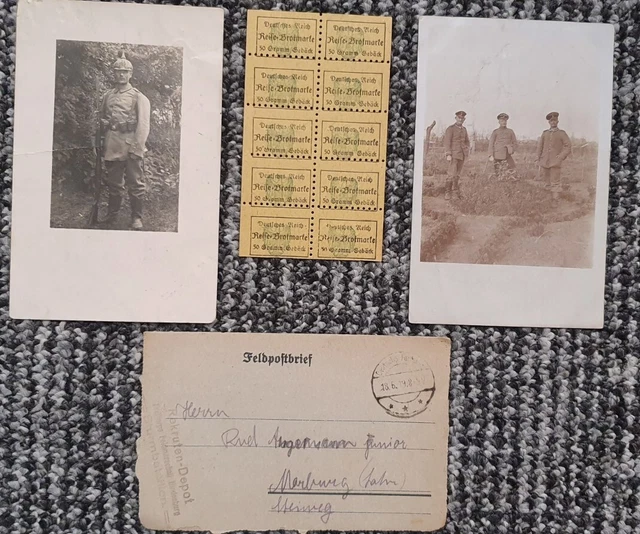 Deutsches Reich
Reise-Brotmarke
50 Gramm Gebäck
Deutsches Reich
Reise-Brotmarke
50 Gramm Gebäck
Deutsches Reich
Reise-Brotmarke
50 Gramm Gebäck
Deutsches Reich
Reise-Brotmarke
50 Gramm Gebäck
Deutsches Reich
Reise-Brotmarke
50 Gramm Gebäck
Deutsches Reich
Reise-Brotmarke
50 Gramm Gebäck
Deutsches Reich
Reise-Brotmarke
50 Gramm Gebäck
Deutsches Reich
Reise-Brotmarke
50 Gramm Gebäck
Deutsches Reich
Reise-Brotmarke
50 Gramm Gebäck
Deutsches Reich
Reise-Brotmarke
50 Gramm Gebäck
Feldpostbrief
Herrn
Rud junior
Marburg (Lahn)
Rekruten-Depot